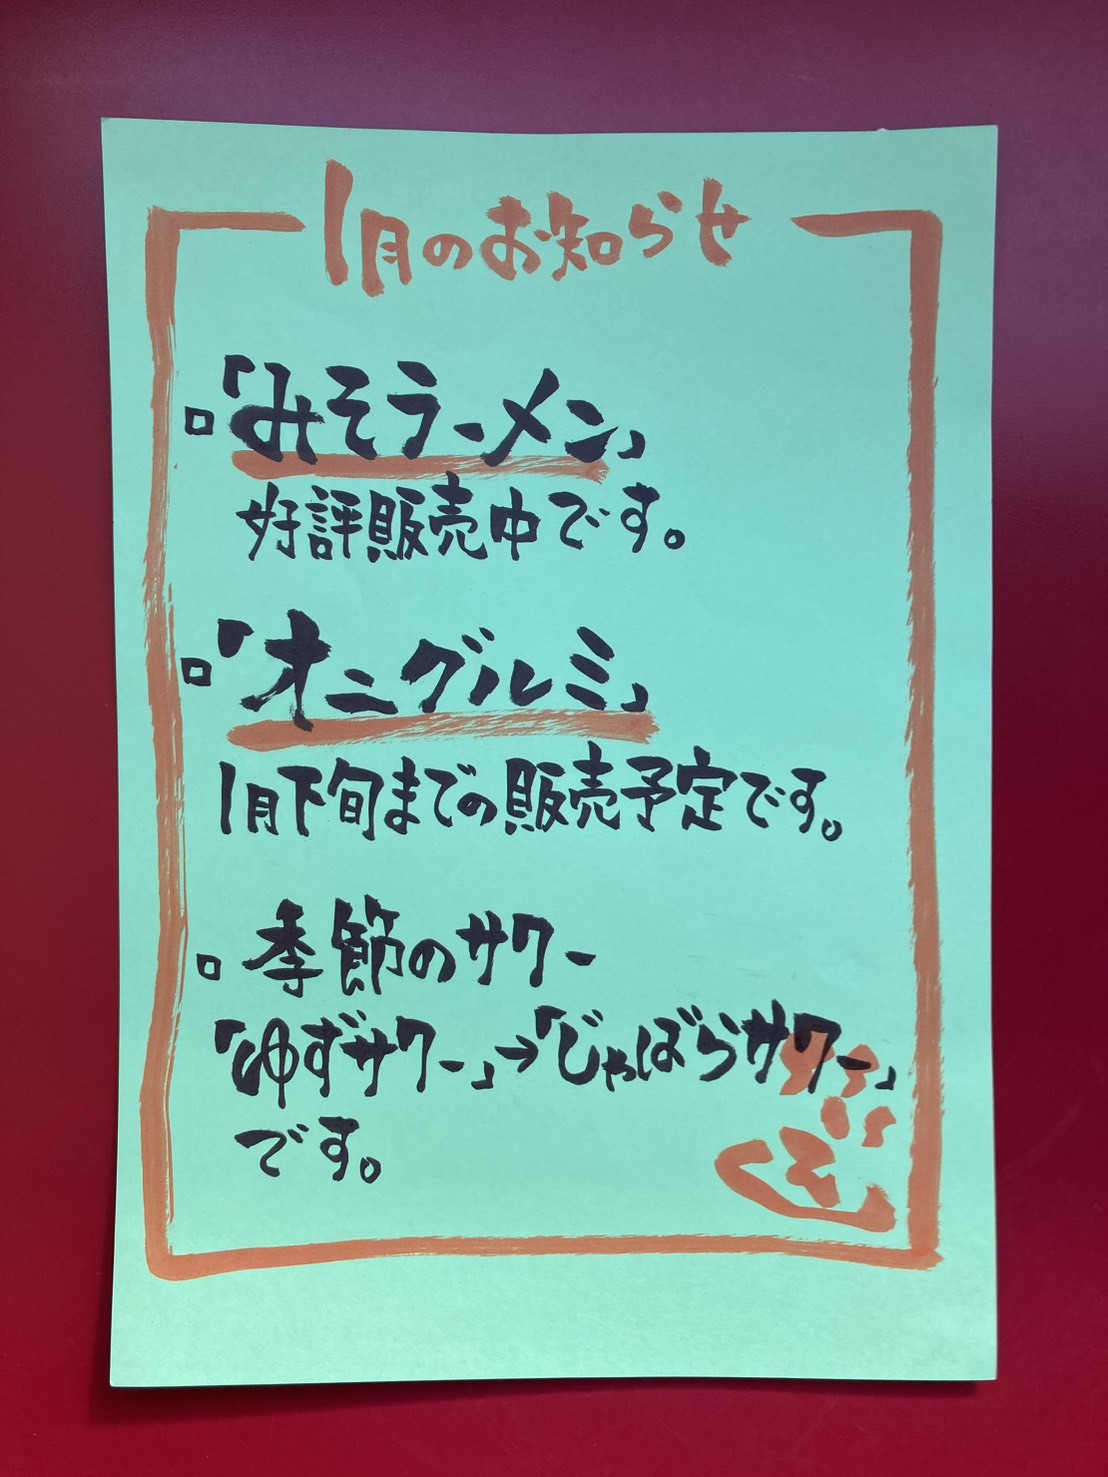 1月のお知らせ
▫「みそラーメン」
好評販売中です。
▫「オニグルミ」
1月下旬までの販売予定です。
▫季節のサワー
「ゆずサワー」→「じゃばらサワー」
です。